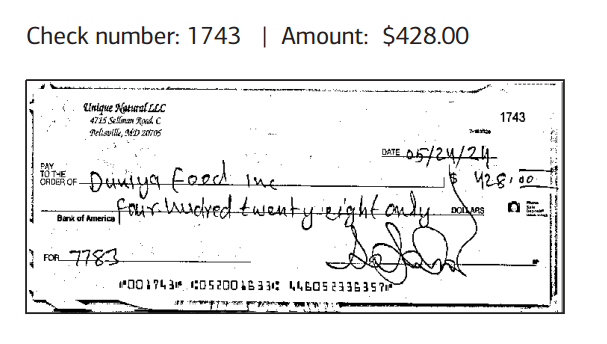 Check number: 1743 | Amount: $428.00
Unique Natural LLC
4715 Sellman Road, C
Beltsville, MD 20705
1743
DATE 05/24/24
PAY TO THE ORDER OF Duniya Food Inc $ 428.00
four-hudred twenty-eight only DOLLARS
Bank of America
FOR 7783
⑈001743⑈ ⑆052001633⑆ 446052336357⑈